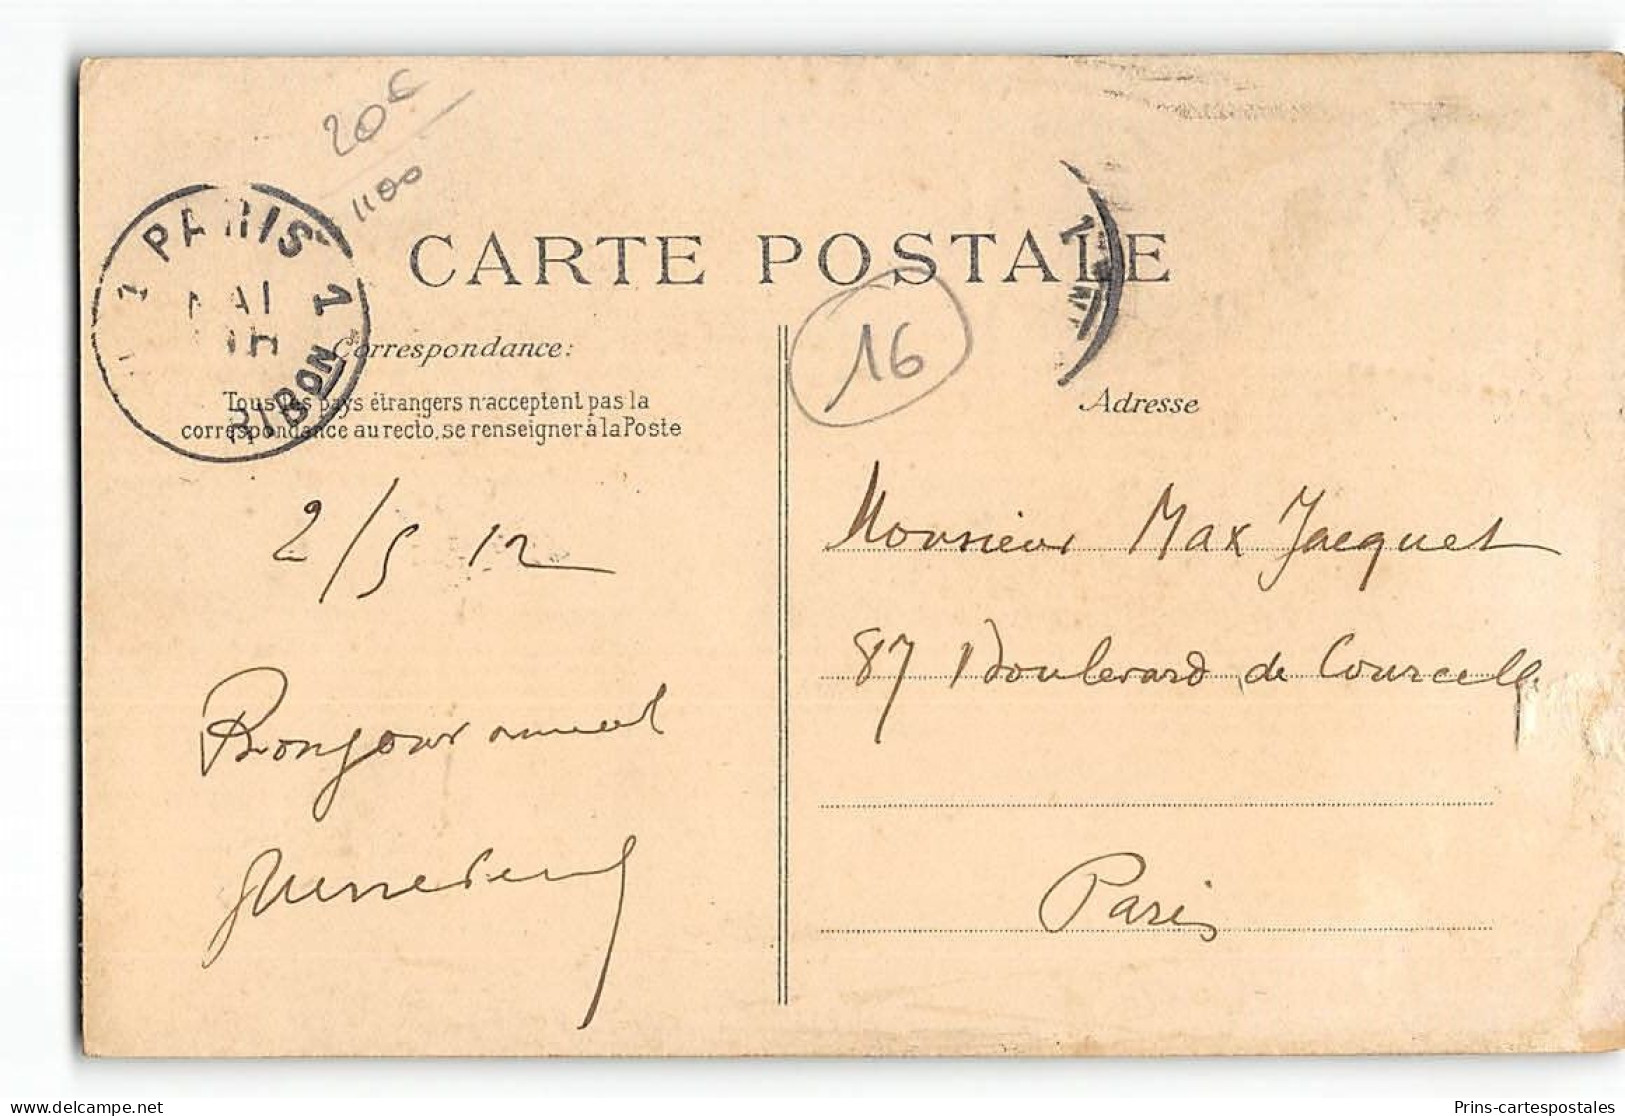 20€
1100
PARIS 1
MAI
BON
CARTE POSTALE
16
Correspondance:
Tous les pays étrangers n'acceptent pas la
correspondance au recto, se renseigner à la Poste
Adresse
2/5 12
Monsieur Max Jacquet
87 Boulevard de Courcelles
Bonjour amical
Paris
Prins-cartespostales
delcampe.net